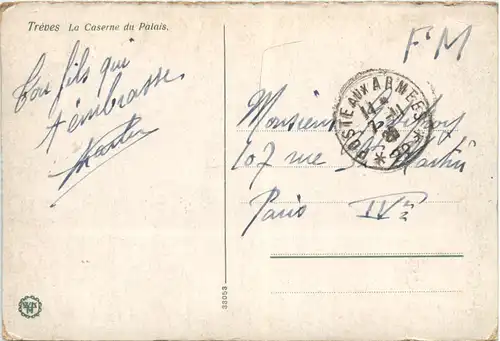 Trèves La Caserne du Palais.
FM
Ton fils qui
t'embrasse
POSTE AUX ARMEES
Monsieur
107 rue St Martin
Paris IVe
33053